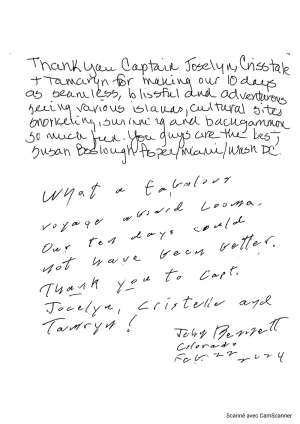 Thank you Captain Joselyn, Crisstale
+ Tamaryn for making our 10 days
as seamless, blissful and adventurous
seeing various islands, cultural sites
snorkeling, swimming and backgammon
so much fun. You guys are the best
Susan Boslough Aspen/Miami/Wash DC.
What a fabulous
voyage aboard
Our ten days could
not have been better.
Thank you to Capt.
Jocelyn, Cristelle and
Tamryn!
John Bennett
Colorado
Feb. 22 2024
Scanné avec CamScanner